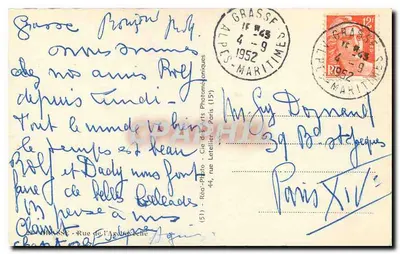 Grasse Bonjour
nous sommes
chez nos amis Rolf
depuis lundi -
Tout le monde va bien
le temps est beau
Rolf et Dady nous font
faire de belles balades
Je pense à vous
GRASSE
15 H 45
4 - 9
1952
ALPES-MARITIMES
GRASSE
15 H 45
4 - 9
1952
ALPES-MARITIMES
12F
Réal-Photo - Cie des Arts Photomécaniques
44, rue Letellier, Paris (15e)
Mr Guy
39 Bd St Jacques
Paris XIV
Rue de